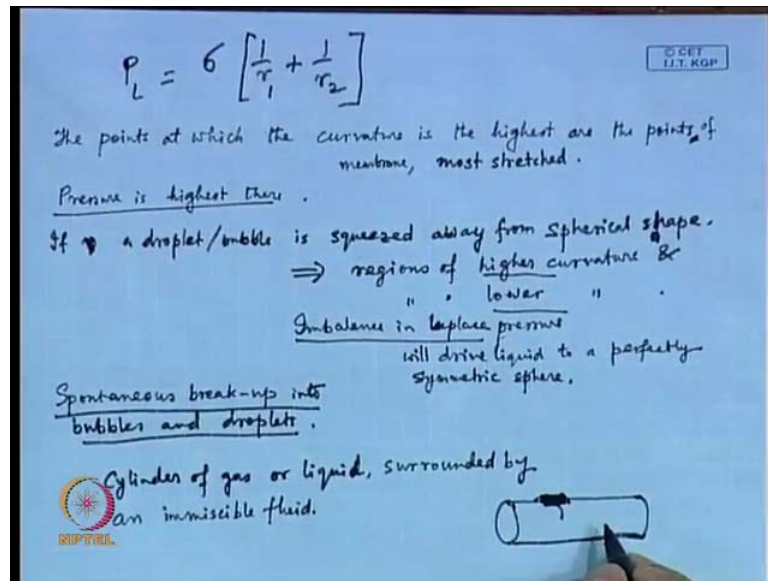 P_L = σ [ 1/r_1 + 1/r_2 ]
© CET
I.I.T. KGP
The points at which the curvature is the highest are the points of
membrane, most stretched.
Pressure is highest there.
If a droplet/bubble is squeezed away from spherical shape.
⇒ regions of higher curvature &
" " lower " .
Imbalance in Laplace pressure
will drive liquid to a perfectly
symmetric sphere.
Spontaneous break-up into
bubbles and droplets.
Cylinder of gas or liquid, surrounded by
an immiscible fluid.
NPTEL